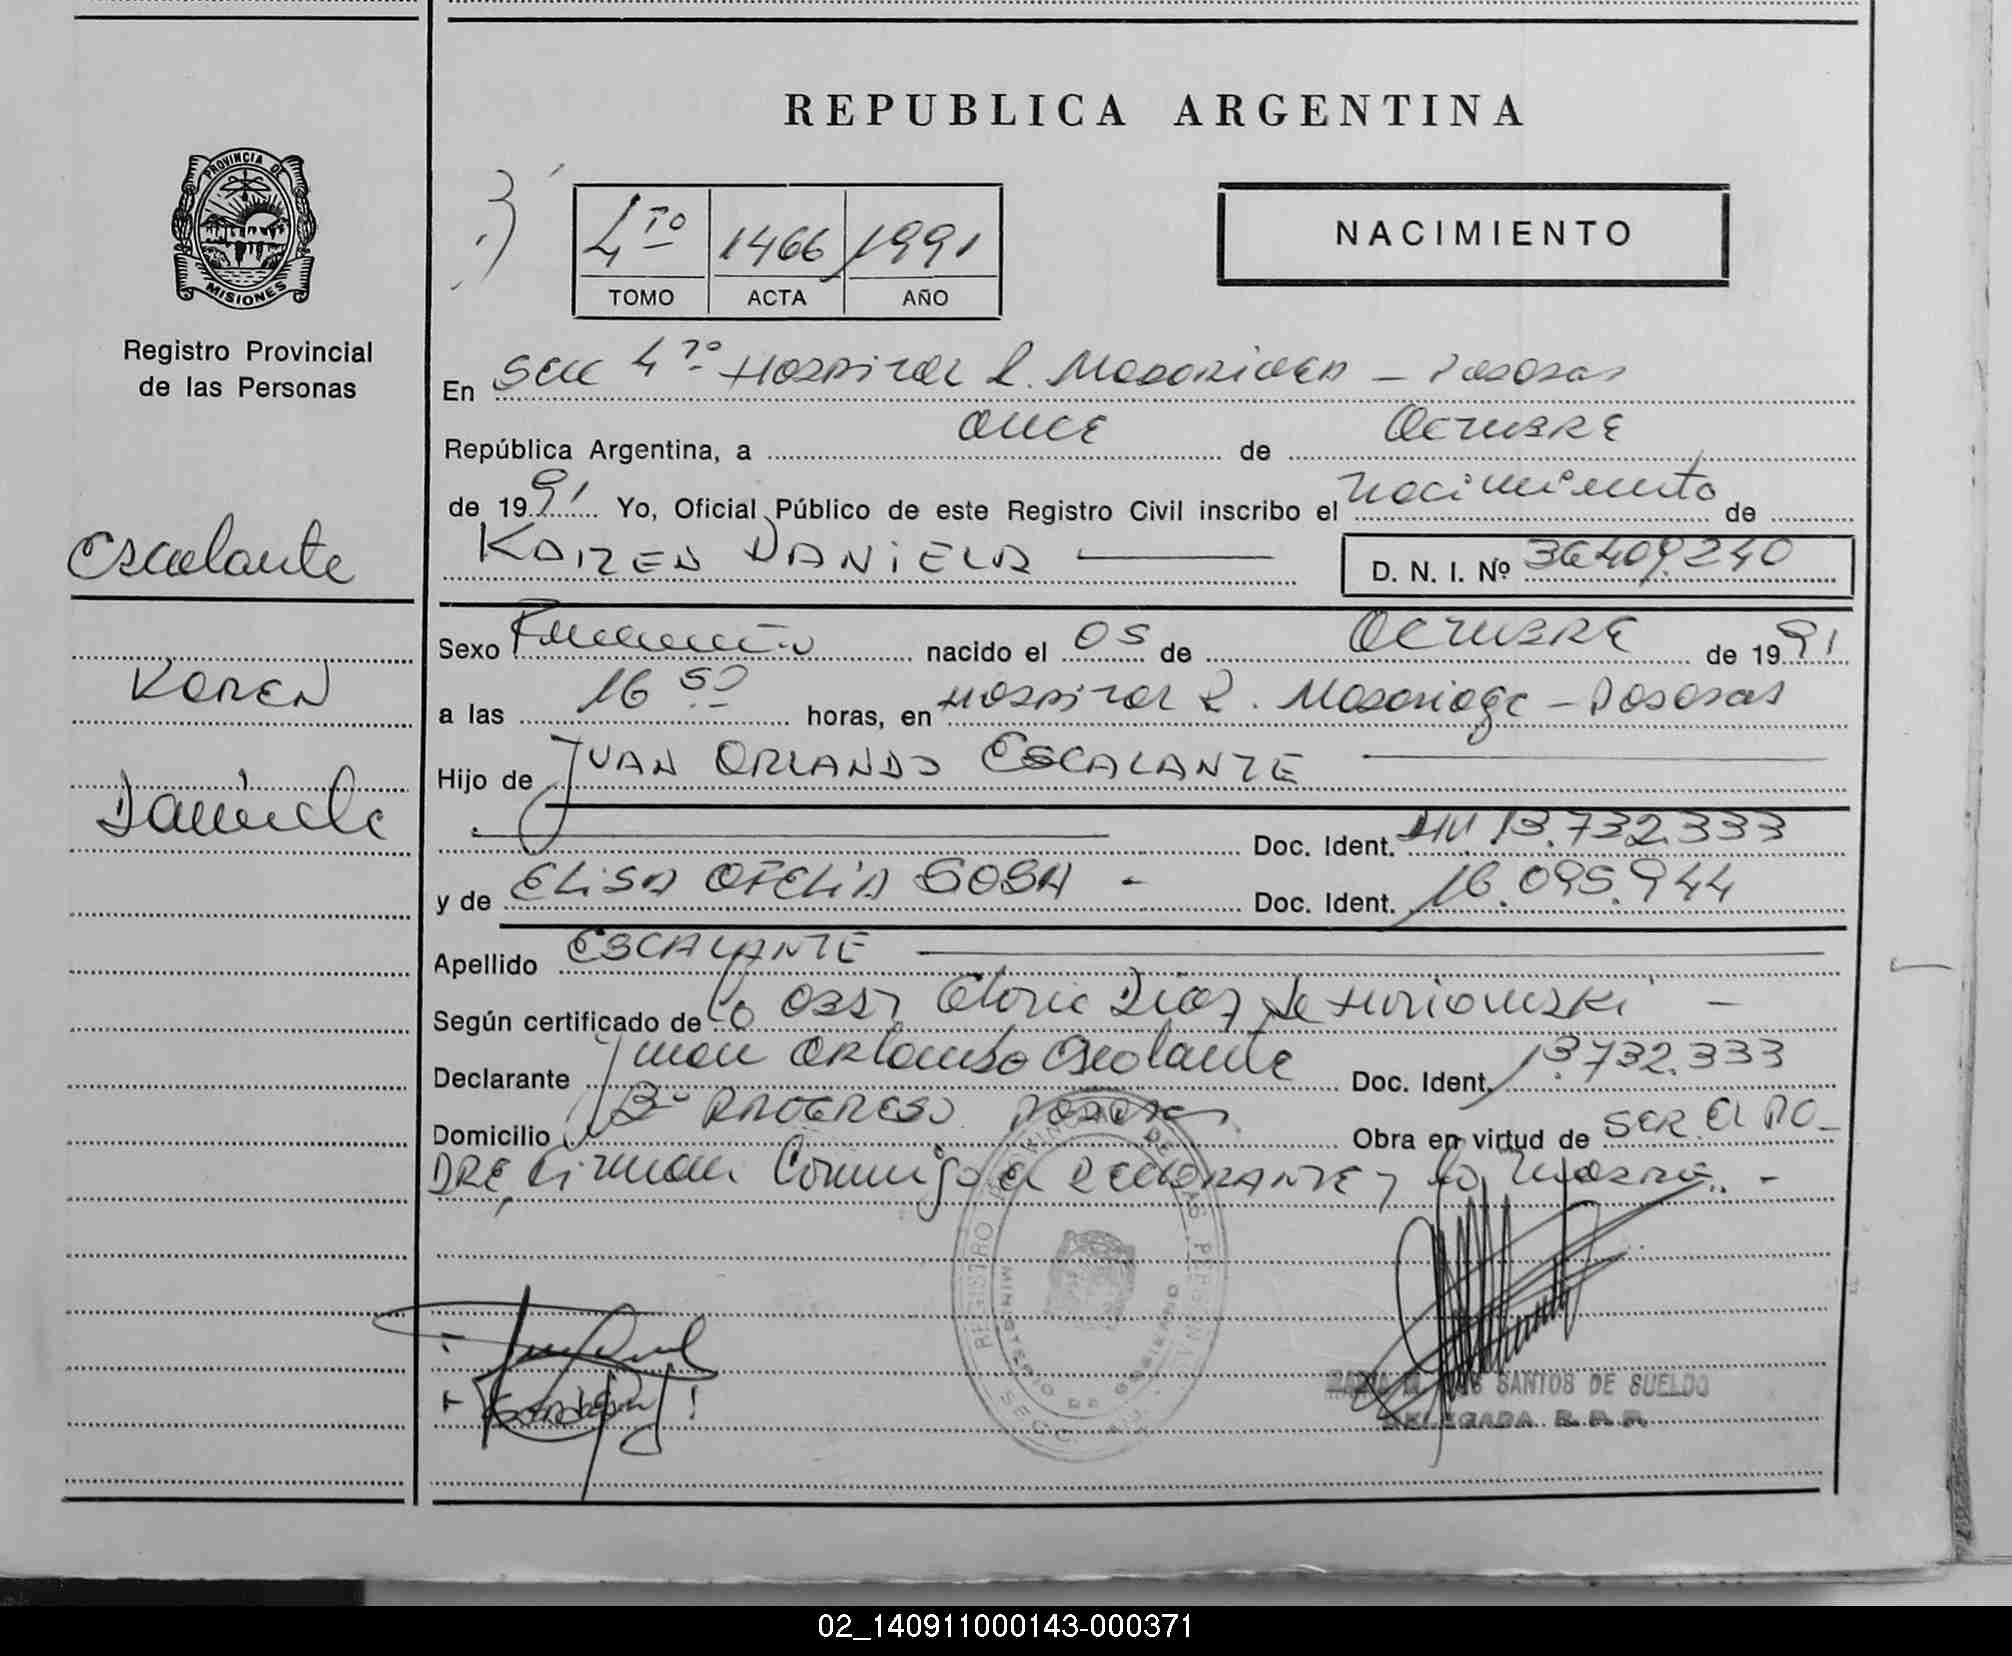 REPUBLICA ARGENTINA
PROVINCIA DE MISIONES
Registro Provincial
de las Personas
4TO 1466 1991
TOMO ACTA AÑO
NACIMIENTO
En Secc 4TO Hospital R. Madariaga - Posadas
República Argentina, a once de Octubre
de 1991 Yo, Oficial Público de este Registro Civil inscribo el nacimiento de
Karen Daniela
D. N. I. Nº 36409.240
Escalante
Karen
Daniela
Sexo Femenino nacido el 05 de Octubre de 1991
a las 16 50 horas, en Hospital R. Madariaga - Posadas
Hijo de Juan Orlando Escalante
Doc. Ident. DNI 13.732.333
y de Elisa Ofelia Sosa - Doc. Ident. 16.095.944
Apellido Escalante
Según certificado de la Obst Gloria Diaz de
Declarante Juan Orlando Escalante Doc. Ident. 13.732.333
Domicilio Bº Progreso Posadas Obra en virtud de ser el pa-
dre, firman conmigo el declarante y la madre. -
REGISTRO PROVINCIAL DE LAS PERSONAS
MINISTERIO DE GOBIERNO
SANTOS DE SUELDO
DELEGADA R. P. P.
02_140911000143-000371